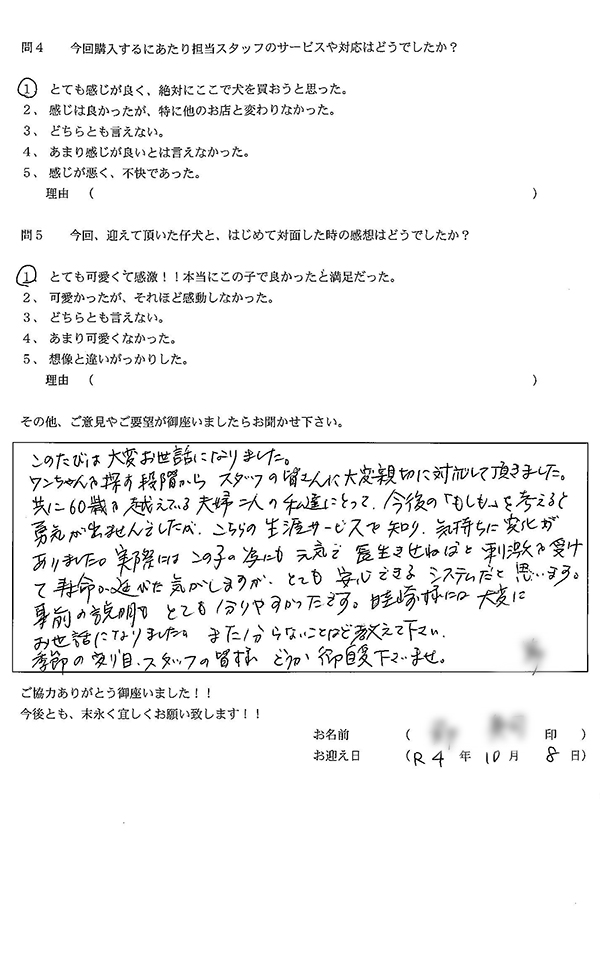 問4 今回購入するにあたり担当スタッフのサービスや対応はどうでしたか？
1、とても感じが良く、絶対にここで犬を買おうと思った。
2、感じは良かったが、特に他のお店と変わりなかった。
3、どちらとも言えない。
4、あまり感じが良いとは言えなかった。
5、感じが悪く、不快であった。
理由 （ ）
問5 今回、迎えて頂いた仔犬と、はじめて対面した時の感想はどうでしたか？
1、とても可愛くて感激！！本当にこの子で良かったと満足だった。
2、可愛かったが、それほど感動しなかった。
3、どちらとも言えない。
4、あまり可愛くなかった。
5、想像と違いがっかりした。
理由 （ ）
その他、ご意見やご要望が御座いましたらお聞かせ下さい。
このたびは大変お世話になりました。
ワンちゃんを探す段階からスタッフの皆さんに大変親切に対応して頂きました。
共に60歳を越えている夫婦二人の私達にとって、今後の「もしも」を考えると
勇気が出ませんでしたが、こちらの生涯サービスを知り、気持ちに変化が
ありました。実際にはこの子の為にも元気で長生きせねばと刺激を受け
て寿命が延びた気がしますが、とても安心できるシステムだと思います。
事前の説明もとても分りやすかったです。 様には大変に
お世話になりました。また分からないことなど教えて下さい。
季節の変り目、スタッフの皆様 どうか御自愛下さいませ。
ご協力ありがとう御座いました！！
今後とも、末永く宜しくお願い致します！！
お名前 （ 印 ）
お迎え日 （R 4 年 10 月 8 日）